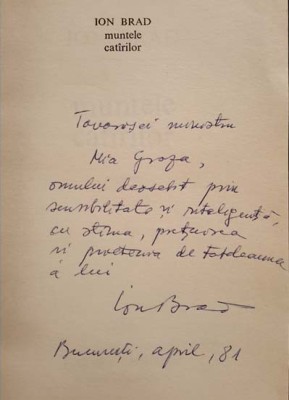 ION BRAD
muntele
catîrilor
Tovarășei ministru
Mia Groza,
omului deosebit prin
sensibilitate și inteligență,
cu stima, prețuirea
și prietenia de totdeauna
a lui
Ion Brad
București, april, 81